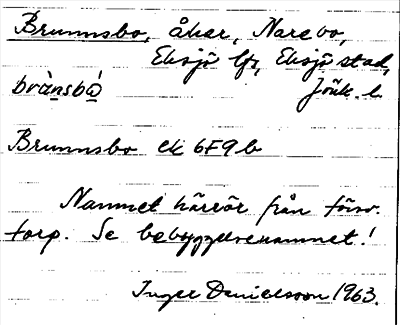 Brunnsbo, åker, Narebo,
Eksjö lfs, Eksjö stad,
brànsbò̤ Jönk. l.
Brunnsbo ek 6F9b
Namnet härrör från försv.
torp. Se bebyggelsenamnet!
Inger Danielsson 1963.